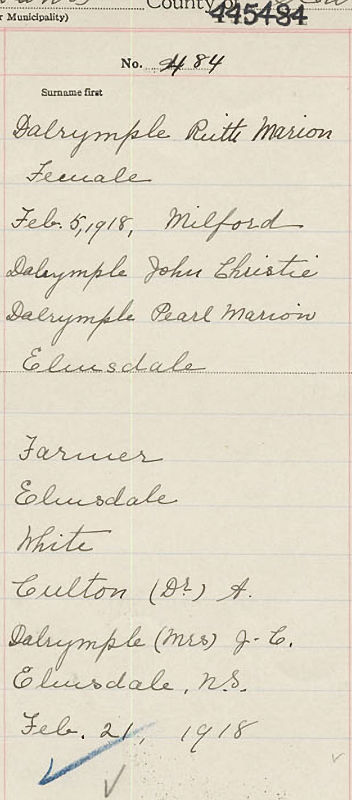 County
445484
r Municipality)
No. 484
Surname first
Dalrymple Ruth Marion
Female
Feb. 5, 1918, Milford
Dalrymple John Christie
Dalrymple Pearl Marion
Elmsdale
Farmer
Elmsdale
White
Culton (Dr.) A.
Dalrymple (Mrs) J. C.
Elmsdale, N.S.
Feb. 21, 1918